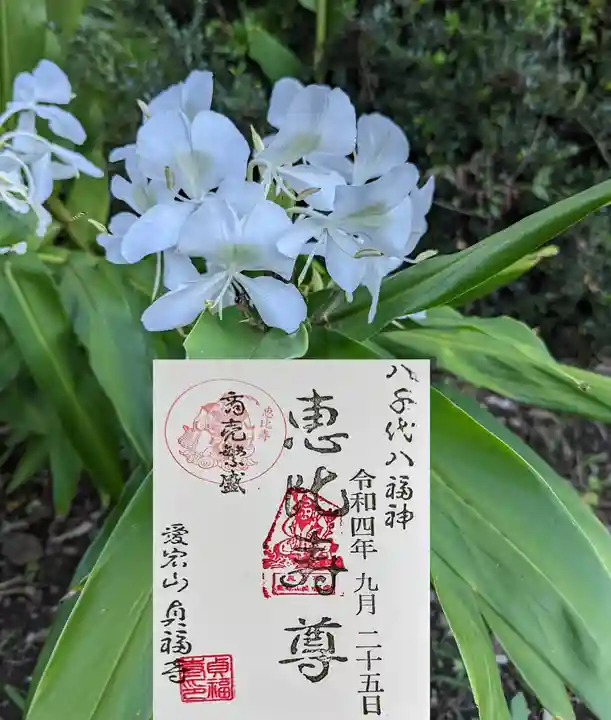 八千代八福神
令和四年 九月 二十五日
恵比寿尊
商売繁盛
恵比寿
愛宕山貞福寺